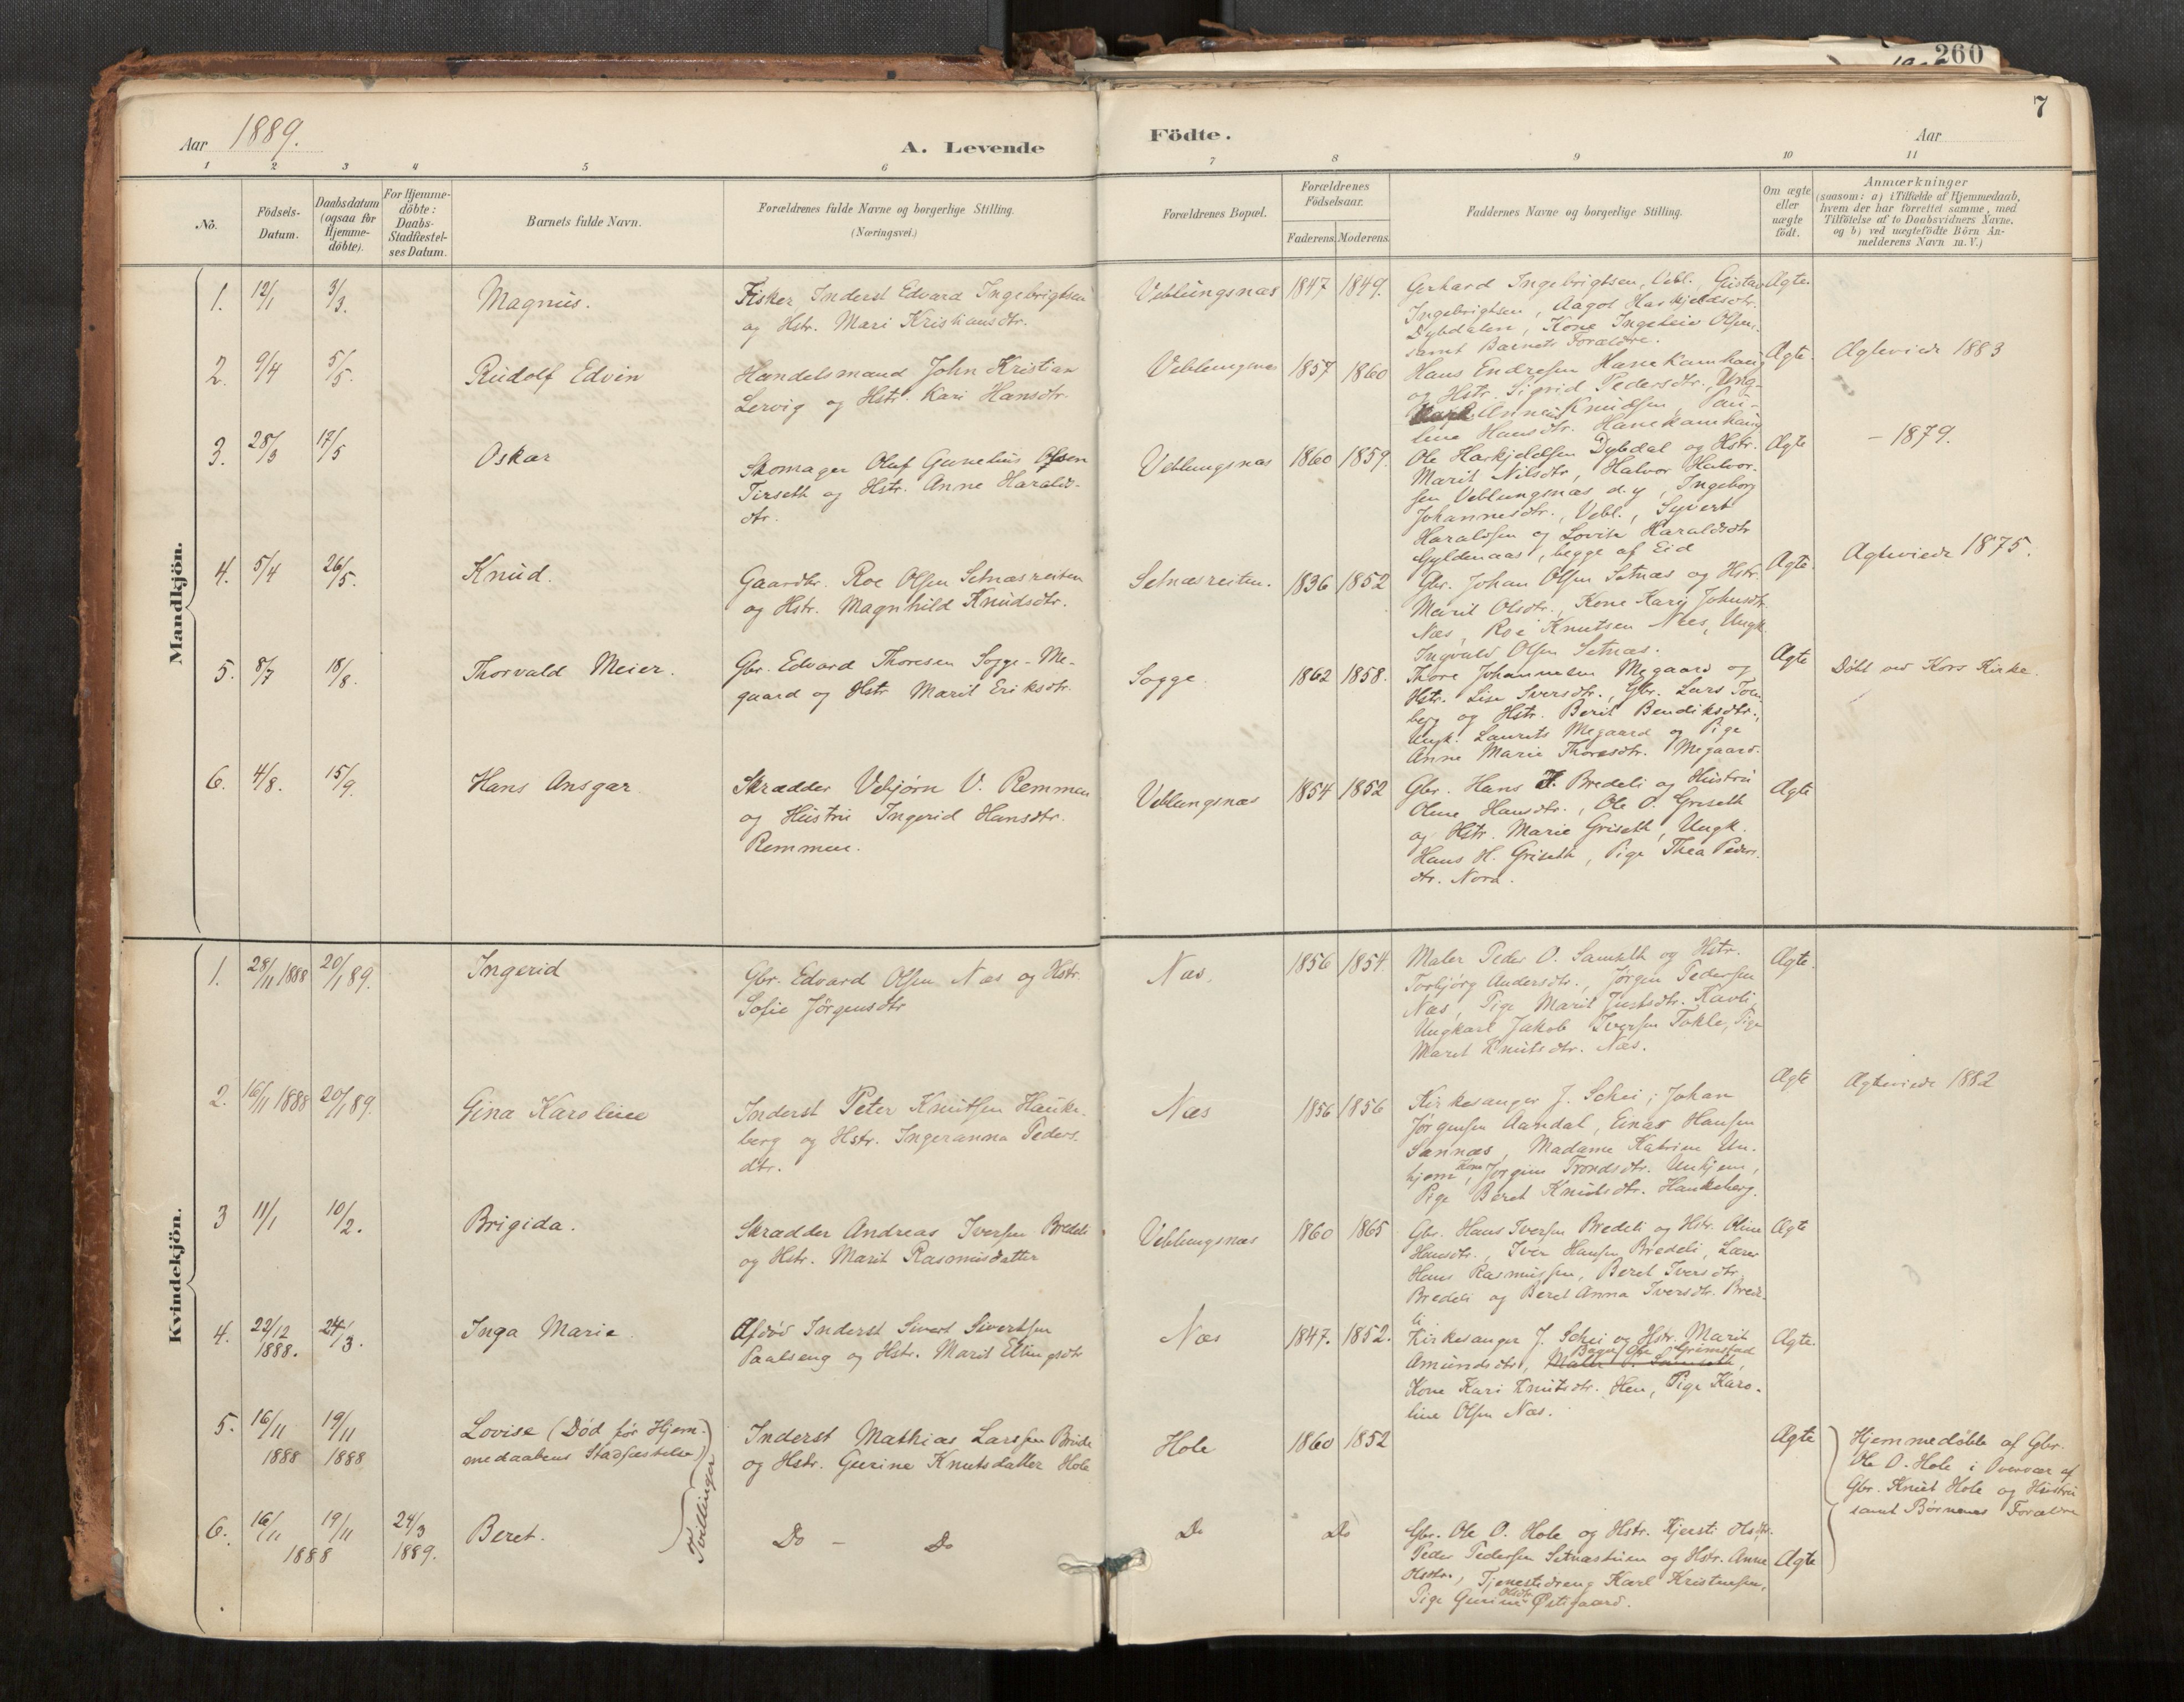 260
7
Aar 1889.
A. Levende
Födte.
Aar
1 2 3 4 5 6 7 8 9 10 11
No.
Födsels-
Datum.
Daabsdatum
(ogsaa for
Hjemme-
döbte).
For Hjemme-
döbte:
Daabs-
Stadfæstel-
ses Datum.
Barnets fulde Navn.
Forældrenes fulde Navne og borgerlige Stilling.
(Næringsvei.)
Forældrenes Bopæl.
Forældrenes
Födselsaar.
Faderens. Moderens.
Faddernes Navne og borgerlige Stilling.
Om ægte
eller
uægte
födt.
Anmærkninger
(saasom: a) i Tilfælde af Hjemmedaab,
hvem der har forrettet samme, med
Tilföielse af to Daabsvidners Navne.
og b) ved uægtefödte Börn An-
melderens Navn m. V.)
Mandkjön.
1. 12/1 3/3. Magnus.
Fisker Inderst Edvard Ingebrigtsen
og Hstr. Mari Kristiansdtr.
Veblungsnæs 1847 1849.
Gerhard Ingebrigtsen, Vebl., Gustav
Ingebrigtsen, Aagot Haskjeldsdtr.
Dybdalen, Kone Ingeleiv Olsen,
samt Barnets Forældre.
Ægte
2. 9/4 5/5. Rudolf Edvin
Handelsmand John Kristian
Lervig og Hstr. Kari Hansdtr.
Veblungsnæs 1857 1860
Hans Endresen Hanekamhaug
og Hstr. Sigrid Pedersdtr., Ung-
Knudsen, Pau-
line Hansdtr. Hanekamhaug
Ægte.
Ægteviede 1883
3. 28/3 17/5 Oskar
Skomager Oluf Gunelius Olsen
Tirseth og Hstr. Anne Haralds-
dtr.
Veblungsnæs 1860 1859.
Ole Haskjeldsen Dybdal og Hstr.
Marit Nilsdtr., Halvor Halvor-
sen Veblungsnæs d. y, Ingeborg
Johannesdtr., Vebl., Syvert
Haraldsen og Lovise Haraldsdtr
Gyldenaas, begge af Eid
Ægte
- 1879.
4. 5/4 26/5. Knud.
Gaardbr. Roe Olsen Setnæsreiten
og Hstr. Magnhild Knudsdtr.
Setnæsreiten. 1836 1852
Gbr. Johan Olsen Setnæs og Hstr.
Marit Olsdtr., Kone Kari Johnsdtr.
Næs, Roe Knutsen Næs, Ungk.
Ingvald Olsen Setnæs.
Ægte.
Ægteviede 1875.
5. 8/7 18/8. Thorvald Meier.
Gbr. Edvard Thoresen Sogge-Me-
gaard og Hstr Marit Eriksdtr.
Sogge. 1862 1858.
Thore Johannesen Megaard og
Hstr. Lise Iversdtr., Gbr. Lars Tom-
berg og Hstr. Berit Bendiksdtr.,
Ungk. Laurits Megaard og Pige
Anne Marie Thoresdtr. Megaard.
Ægte
Døbt ved Kors Kirke.
6. 4/8. 15/9. Hans Ansgar.
Skrædder Vebjørn V. Remmen
og Hustru Ingerid Hansdtr.
Remmen.
Veblungsnæs 1854 1852
Gbr. Hans H. Bredeli og Hustru
Oline Hansdtr., Ole O. Griseth
og Hstr. Marie Griseth, Ungk.
Hans H. Griseth, Pige Thea Peders-
dtr. Nora.
Ægte
Kvindekjön.
1. 28/11 1888 20/1 89. Ingerid
Gbr. Edvard Olsen Næs og Hstr.
Sofie Jørgensdtr
Næs. 1856 1854.
Maler Peder O. Samseth og Hstr.
Torbjørg Andersdtr., Jørgen Pedersen
Næs, Pige Marit Justsdtr. Kavli,
Ungkarl Jakob Iversen Tokle, Pige
Maret Knutsdtr. Næs.
Ægte.
2. 16/11 1888 20/1 89. Gina Karoline
Inderst Peter Knutsen Hauke-
berg og Hstr. Ingeranna Peders-
dtr.
Næs 1856 1856
Kirkesanger J. Schei; Johan
Jørgensen Aandal, Einar Hansen
Sannæs, Madame Katrine Un-
hjem, Kone Jørgine Trondsdtr. Unhjem,
Pige Beret Knutsdtr. Haukeberg.
Ægte
Ægteviede 1882
3 11/1 10/2. Brigida.
Skrædder Andreas Iversen Bredeli
og Hstr. Marit Rasmusdatter
Veblungsnæs 1860 1865
Gbr. Hans Iversen Bredeli og Hstr. Oline
Hansdtr., Iver Hansen Bredeli, Lærer
Hans Rasmussen, Beret Iversdtr.
Bredeli og Beret Anna Iversdtr. Brede-
li
Ægte
4. 22/12 1888. 24/3. Inga Marie.
Afdød Inderst Sivert Sivertsen
Paalseng og Hstr. Marit Ellingsdtr
Næs 1847. 1852.
Kirkesanger J. Schei og Hstr. Marit
Amundsdtr., Bager Ole Grimstad
Kone Kari Knutsdtr. Hen, Pige Karo-
line Olsen Næs.
Ægte.
5. 16/11 1888 19/11 1888 Lovise (Død før Hjem-
medaabens Stadfæstelse)
Tvillinger
Inderst Mathias Larssen Brude
og Hstr. Gurine Knutsdatter Hole
Hole 1860 1852
Ægte
Hjemmedøbte af Gbr.
Ole O. Hole i Overvær af
Gbr. Knut Hole og Hustru
samt Børnenes Forældre
6. 16/11 19/11 1888 24/3 1889. Beret.
Do - Do
Do Do
Gbr. Ole O. Hole og Hstr. Kjersti Olsdtr.
Peder Pedersen Setnæstuen og Hstr. Anne
Olsdtr., Tjenestedreng Karl Kristensen,
Pige Gurine Olsdtr. Østigaard.
Ægte